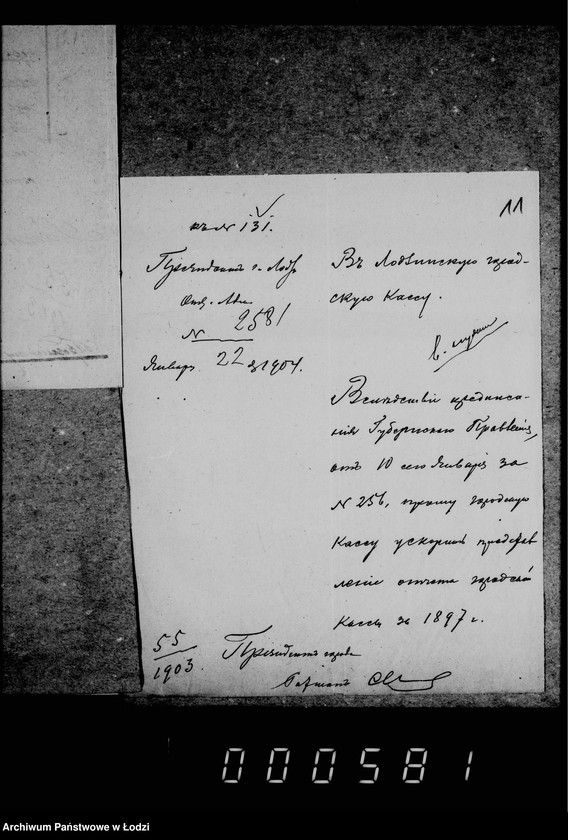 11
къ № 131.
Президентъ г. Лодзь
Отд. Адм.
№ 2581
Января 22 д. 1904.
Въ Лодзинскую город-
скую Кассу.
Вслѣдствіе предписа-
нія Губернскаго Правленія,
отъ 10 сего Января за
№ 256, прошу городскую
Кассу ускорить представ
леніе отчета городской
Кассы за 1897 г.
55
1903.
Президентъ города
000581
Archiwum Państwowe w Łodzi